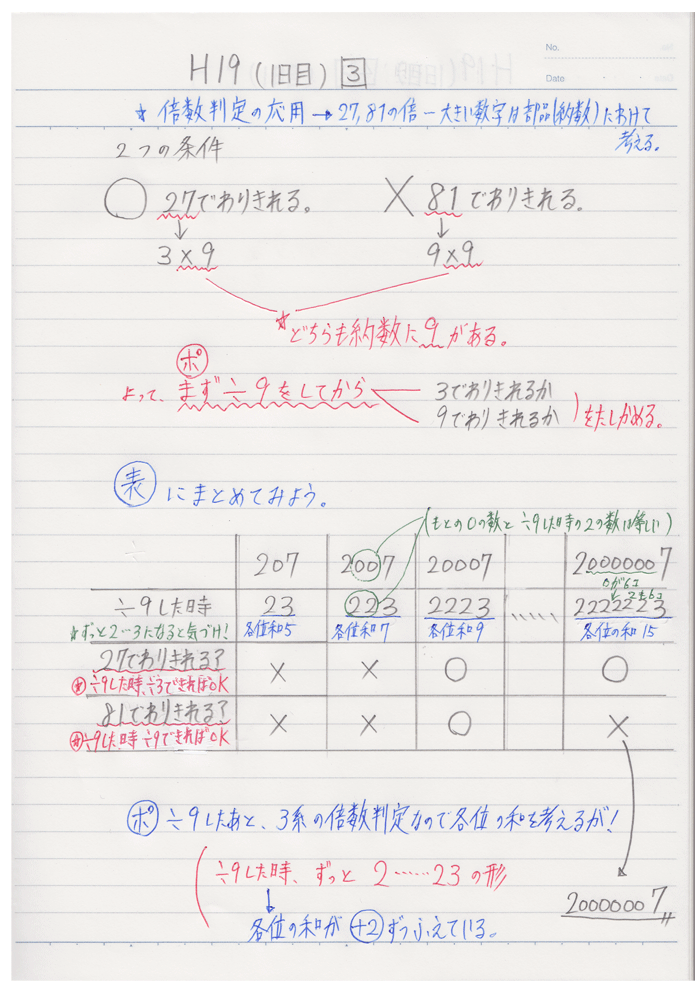 H19(1日目) 3
No.
Date
☆ 倍数判定の応用→27,81の倍−大きい数字は部品(約数)にわけて
考える。
2つの条件
○ 27でわりきれる。 × 81でわりきれる。
↓ ↓
3×9 9×9
☆どちらも約数に9がある。
ポ
よって、まず÷9をしてから 3でわりきれるか
9でわりきれるか )をたしかめる。
表 にまとめてみよう。
(もとの0の数と÷9した時の2の数は等しい)
207 2007 20007 20000007
0が6コ
2も6コ
÷9した時 23 223 2223 ...... 2222223
☆ずっと2…3になると気づけ! 各位和5 各位和7 各位和9 各位の和15
27でわりきれる? × × ○ ○
÷9した時、÷3できればOK
81でわりきれる? × × ○ ×
÷9した時÷9できればOK
ポ ÷9したあと、3系の倍数判定なので各位の和を考えるが!
÷9した時、ずっと 2……23の形
↓
各位の和が+2ずつふえている。
20000007